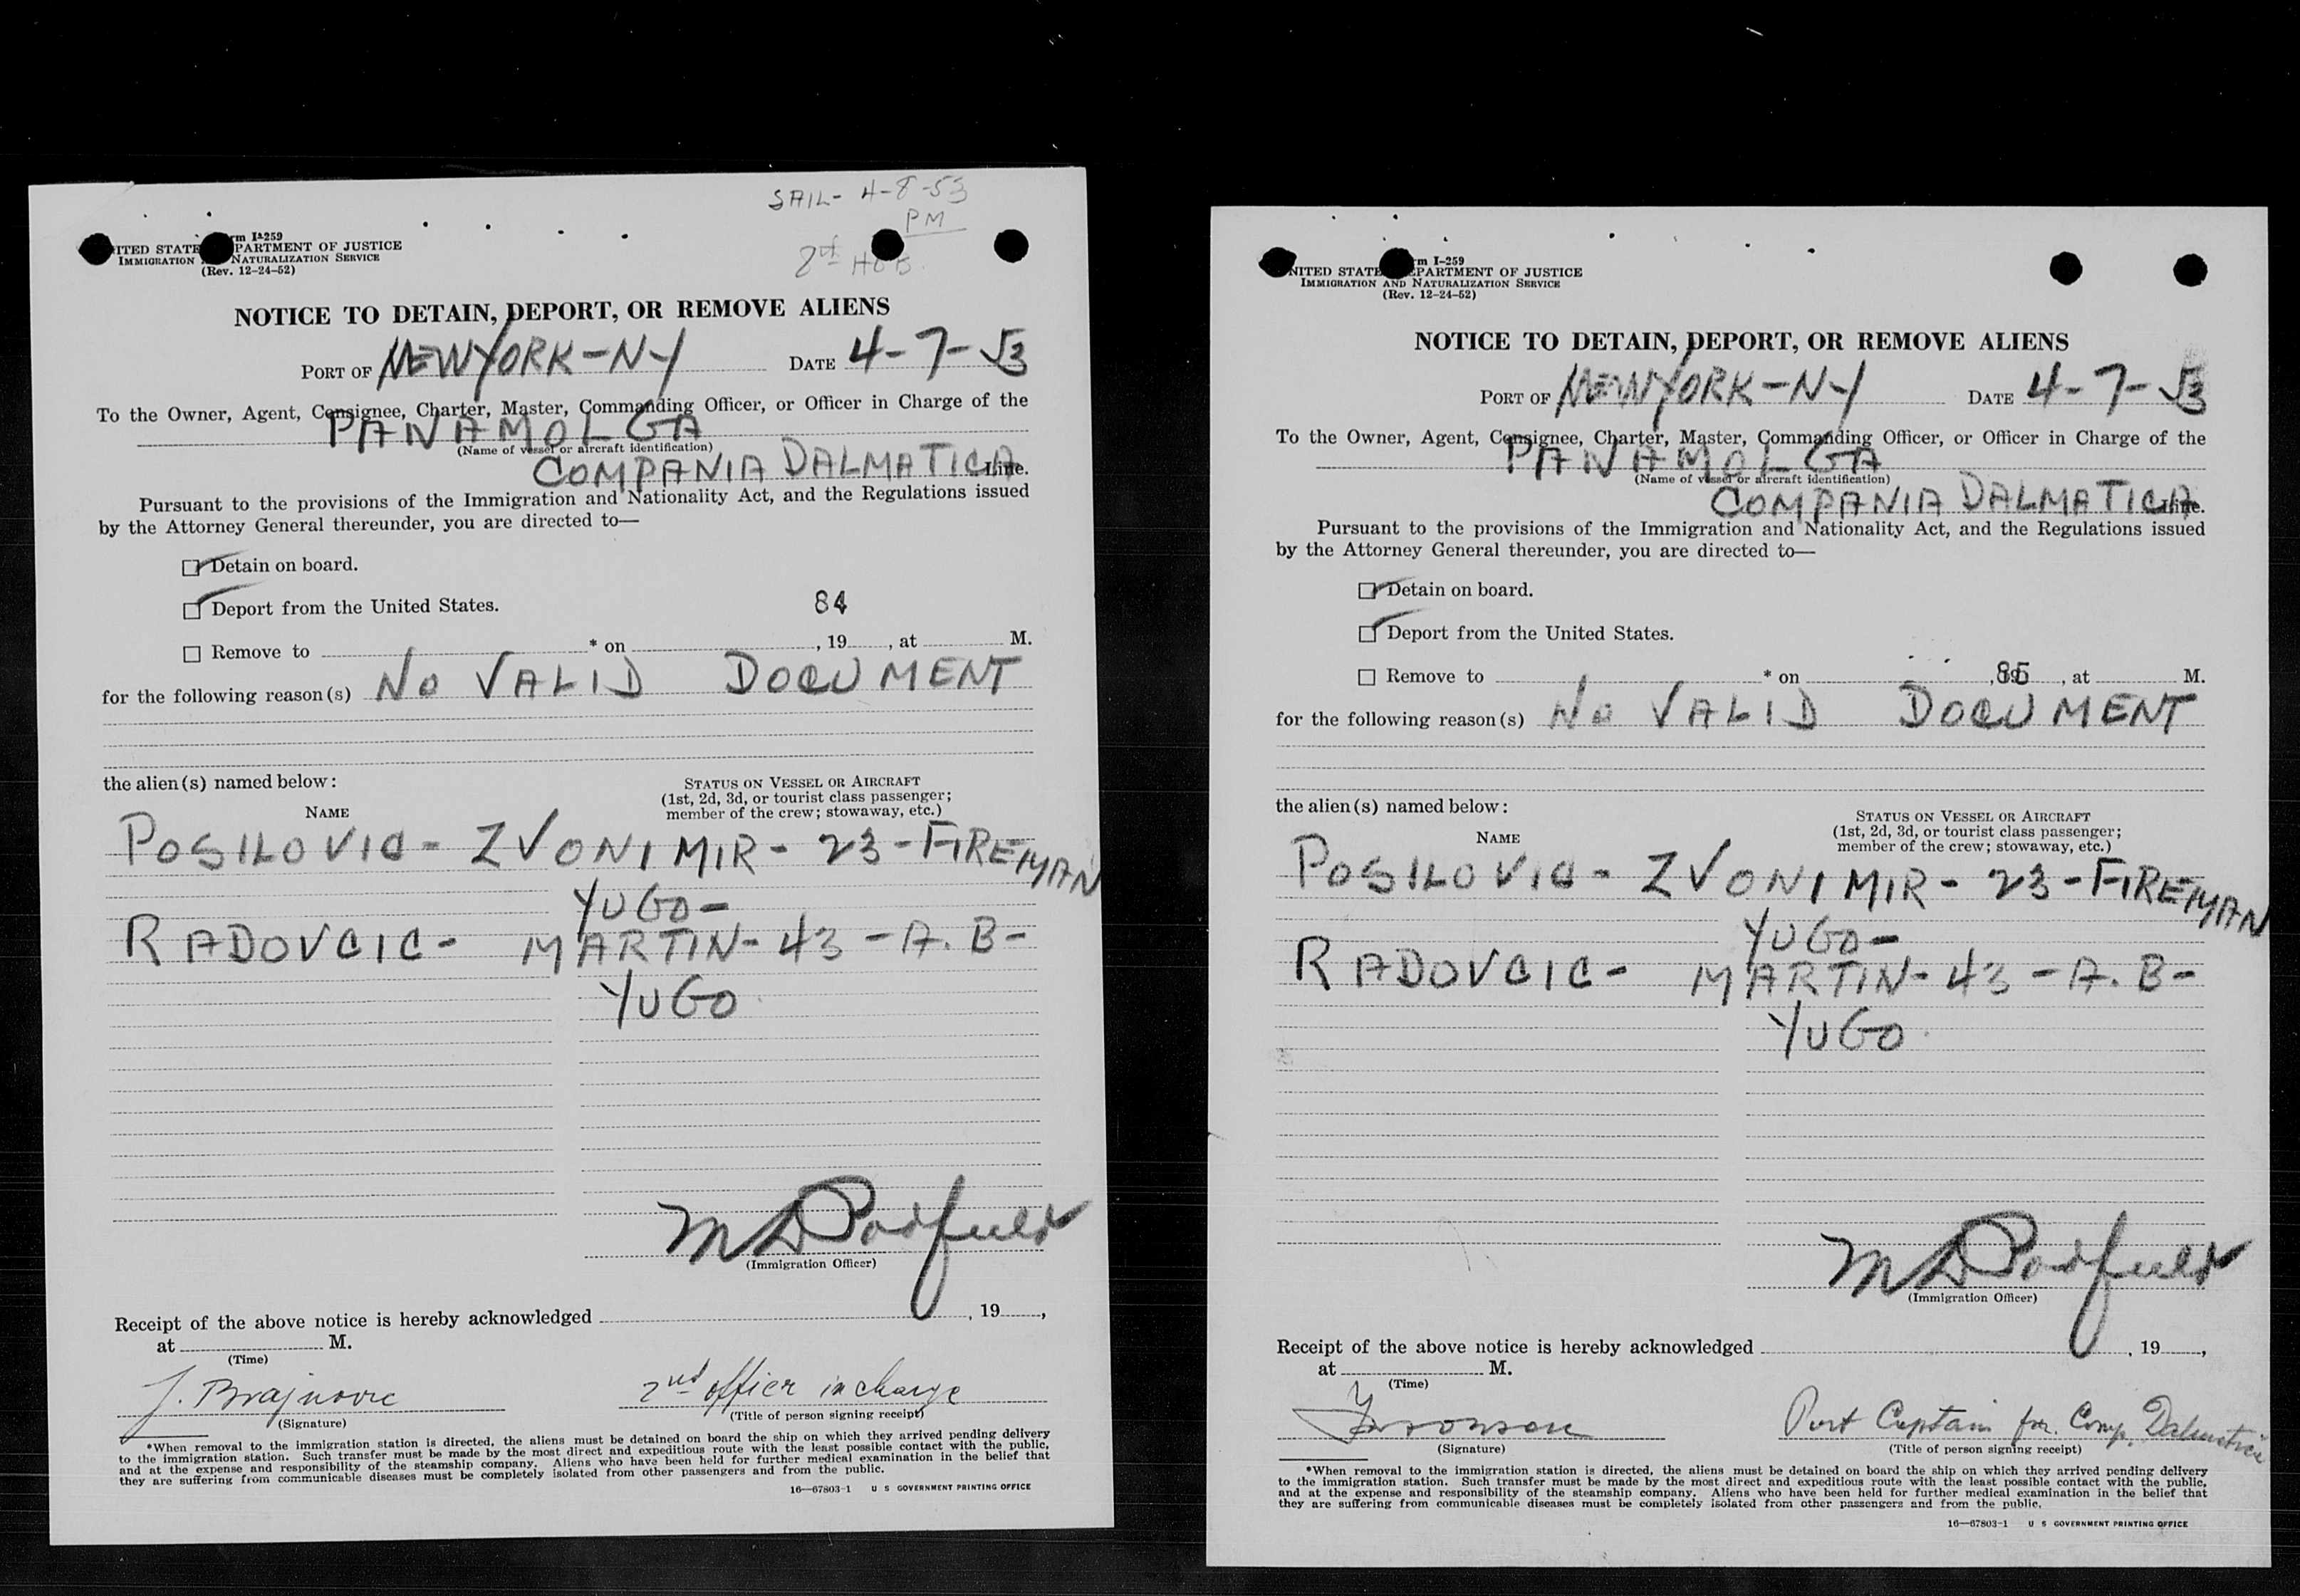 SAIL- 4-8-53
PM
Form I-259
UNITED STATES DEPARTMENT OF JUSTICE
IMMIGRATION NATURALIZATION SERVICE
(Rev. 12-24-52)
NOTICE TO DETAIN, DEPORT, OR REMOVE ALIENS
PORT OF NEW YORK-NY DATE 4-7-53
To the Owner, Agent, Consignee, Charter, Master, Commanding Officer, or Officer in Charge of the
PANAMOLGA
(Name of vessel or aircraft identification)
COMPANIA DALMATICA Line.
Pursuant to the provisions of the Immigration and Nationality Act, and the Regulations issued
by the Attorney General thereunder, you are directed to—
☐ Detain on board.
☐ Deport from the United States. 84
☐ Remove to * on , 19 , at M.
for the following reason(s) NO VALID DOCUMENT
the alien(s) named below:
STATUS ON VESSEL OR AIRCRAFT
(1st, 2d, 3d, or tourist class passenger;
member of the crew; stowaway, etc.)
NAME
POSILOVIC - ZVONIMIR - 23 - FIREMAN
YUGO-
RADOVCIC - MARTIN - 43 - A.B-
YUGO
M D Padfield
(Immigration Officer)
Receipt of the above notice is hereby acknowledged , 19 ,
at M.
(Time)
J. Brajnovic 2nd officer in charge
(Signature) (Title of person signing receipt)
*When removal to the immigration station is directed, the aliens must be detained on board the ship on which they arrived pending delivery
to the immigration station. Such transfer must be made by the most direct and expeditious route with the least possible contact with the public,
and at the expense and responsibility of the steamship company. Aliens who have been held for further medical examination in the belief that
they are suffering from communicable diseases must be completely isolated from other passengers and from the public.
16—67803-1 U S GOVERNMENT PRINTING OFFICE
Form I-259
UNITED STATES DEPARTMENT OF JUSTICE
IMMIGRATION AND NATURALIZATION SERVICE
(Rev. 12-24-52)
NOTICE TO DETAIN, DEPORT, OR REMOVE ALIENS
PORT OF NEW YORK-NY DATE 4-7-53
To the Owner, Agent, Consignee, Charter, Master, Commanding Officer, or Officer in Charge of the
PANAMOLGA
(Name of vessel or aircraft identification)
COMPANIA DALMATICA Line.
Pursuant to the provisions of the Immigration and Nationality Act, and the Regulations issued
by the Attorney General thereunder, you are directed to—
☐ Detain on board.
☐ Deport from the United States.
☐ Remove to * on , 19 85 , at M.
for the following reason(s) NO VALID DOCUMENT
the alien(s) named below:
STATUS ON VESSEL OR AIRCRAFT
(1st, 2d, 3d, or tourist class passenger;
member of the crew; stowaway, etc.)
NAME
POSILOVIC - ZVONIMIR - 23 - FIREMAN
YUGO-
RADOVCIC - MARTIN - 43 - A.B-
YUGO
M D Padfield
(Immigration Officer)
Receipt of the above notice is hereby acknowledged , 19 ,
at M.
(Time)
Port Captain for Comp. Dalmatica
(Signature) (Title of person signing receipt)
*When removal to the immigration station is directed, the aliens must be detained on board the ship on which they arrived pending delivery
to the immigration station. Such transfer must be made by the most direct and expeditious route with the least possible contact with the public,
and at the expense and responsibility of the steamship company. Aliens who have been held for further medical examination in the belief that
they are suffering from communicable diseases must be completely isolated from other passengers and from the public.
16—67803-1 U S GOVERNMENT PRINTING OFFICE